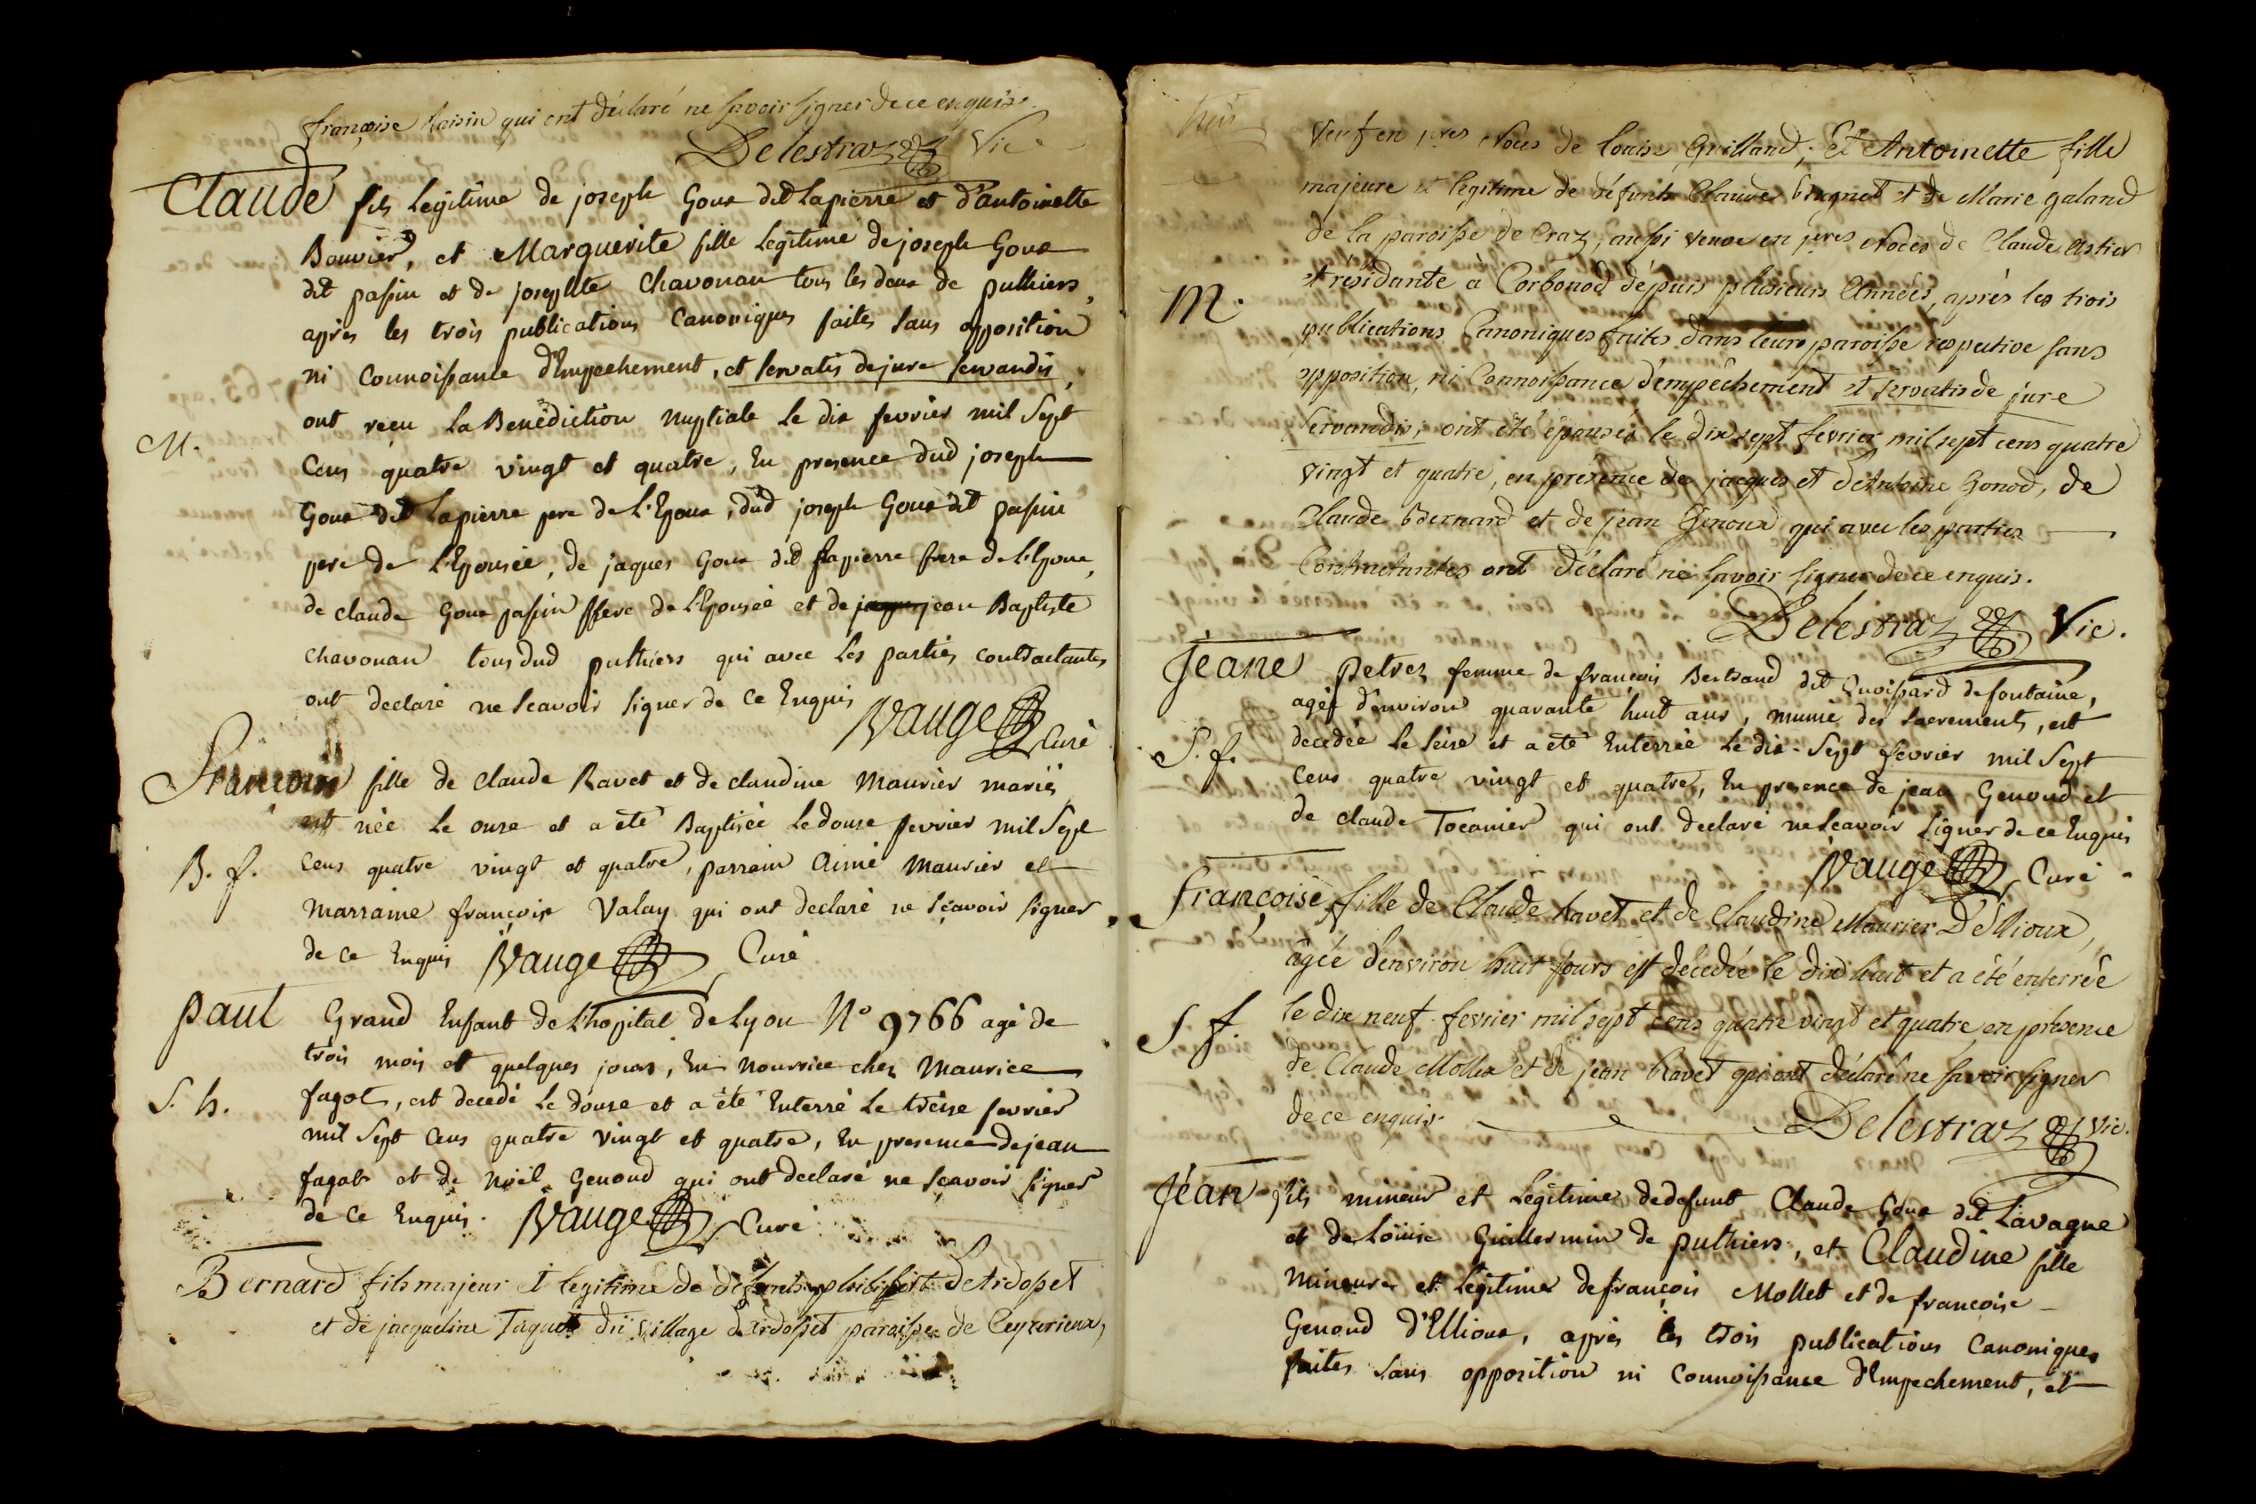 françoise Raisin qui ont déclaré ne savoir signer de ce enquis.
Delestraz Vic.
Claude fils Legitime de joseph Goux dit Lapierre et d'antoinette
Bouvier, et Marguerite fille Legitime de joseph Goux
dit passin et de josephte Chavonau tous les deux de puthiers,
après les trois publications Canoniques faites sans opposition
ni Connoissance d'Empechement, et servatis de jure servandis,
M.
ont reçu La Bénédiction nuptiale Le dix fevrier mil Sept
Cens quatre vingt et quatre, En presence dud joseph
Goux dit Lapierre pere de L'Epoux, dud joseph Goux dit passin
pere de L'Epousée, de jaques Goux dit Lapierre frere de L'Epoux,
de claude Goux passin frere de L'Epousée et de jean Baptiste
chavonau tous dud puthiers qui avec Les parties contractantes
ont declaré ne Scavoir signer de Ce Enquis
Vauge Curé
fille de claude Ravet et de claudine Maurier mariés
est née Le onze et a eté Baptisée Le douze fevrier mil Sept
B. f.
Cens quatre vingt et quatre, parrain Aimé Maurier et
marraine françoise Valay qui ont declaré ne sçavoir signer
de ce Enquis Vauge Curé
paul Grand Enfant de L'hopital de Lyon N° 9766 agé de
trois mois et quelques jours, En nourrice chez Maurice
S. h.
fagot, est decedé Le douze et a été Enterré Le treize fevrier
mil Sept Cens quatre vingt et quatre, En presence de jean
fagot et de Noël Genoud qui ont declaré ne sçavoir signer
de Ce Enquis. Vauge Curé
Bernard fils majeur et legitime de défunts philibert Dardosset
et de jacqueline Taquet du village Dardosset paroisse de Ceyzerieux,
Veuf en 1res Noces de Louise Guilland, Et Antoinette fille
majeure et legitime de défunts Claude Brugnot et de Marie galand
de la paroisse de Craz, aussi veuve en 1res Noces de Claude Astier
et résidante à Corbonod dépuis plusieurs Années, après les trois
M.
publications Canoniques faites dans leurs paroisse respective sans
opposition, ni Connoissance d'empêchement et servatis de jure
Servandis, ont été épousés le dix sept fevrier mil sept cens quatre
vingt et quatre, en présence de jacques et d'Antoine Gonod, de
Claude Bernard et de jean Genoux qui avec les parties
Contractantes ont déclaré ne savoir signer de ce enquis.
Delestraz Vic.
Jeane petrez femme de françois Bertrand dit Quoissard de fontaine,
agée d'environ quarante huit ans, munie des sacrements, est
S. f.
decedée Le seize et a eté Enterrée Le dix-Sept fevrier mil Sept
Cens quatre vingt et quatre, En presence de jean Genoud et
de claude Tocanier qui ont declaré ne Scavoir signer de ce Enquis
Vauge Curé
françoise, fille de Claude Ravet et de Claudine Maurier D'Ellioux,
âgée d'environ huit jours est décedée le dix huit et a été enterrée
S f.
le dix neuf fevrier mil sept cens quatre vingt et quatre en présence
de Claude Mollex et de jean Ravet qui ont déclaré ne savoir signer
de ce enquis.
Delestraz Vic.
Jean fils mineur et Légitime de defunt Claude Goux dit Lavagne
et de Loüise Guillermin de puthiers, et Claudine fille
Mineure et Légitime de françois Mollet et de françoise
Genoud d'Ellioux, après les trois publications Canoniques
faites sans opposition ni Connoissance d'Empechement, et